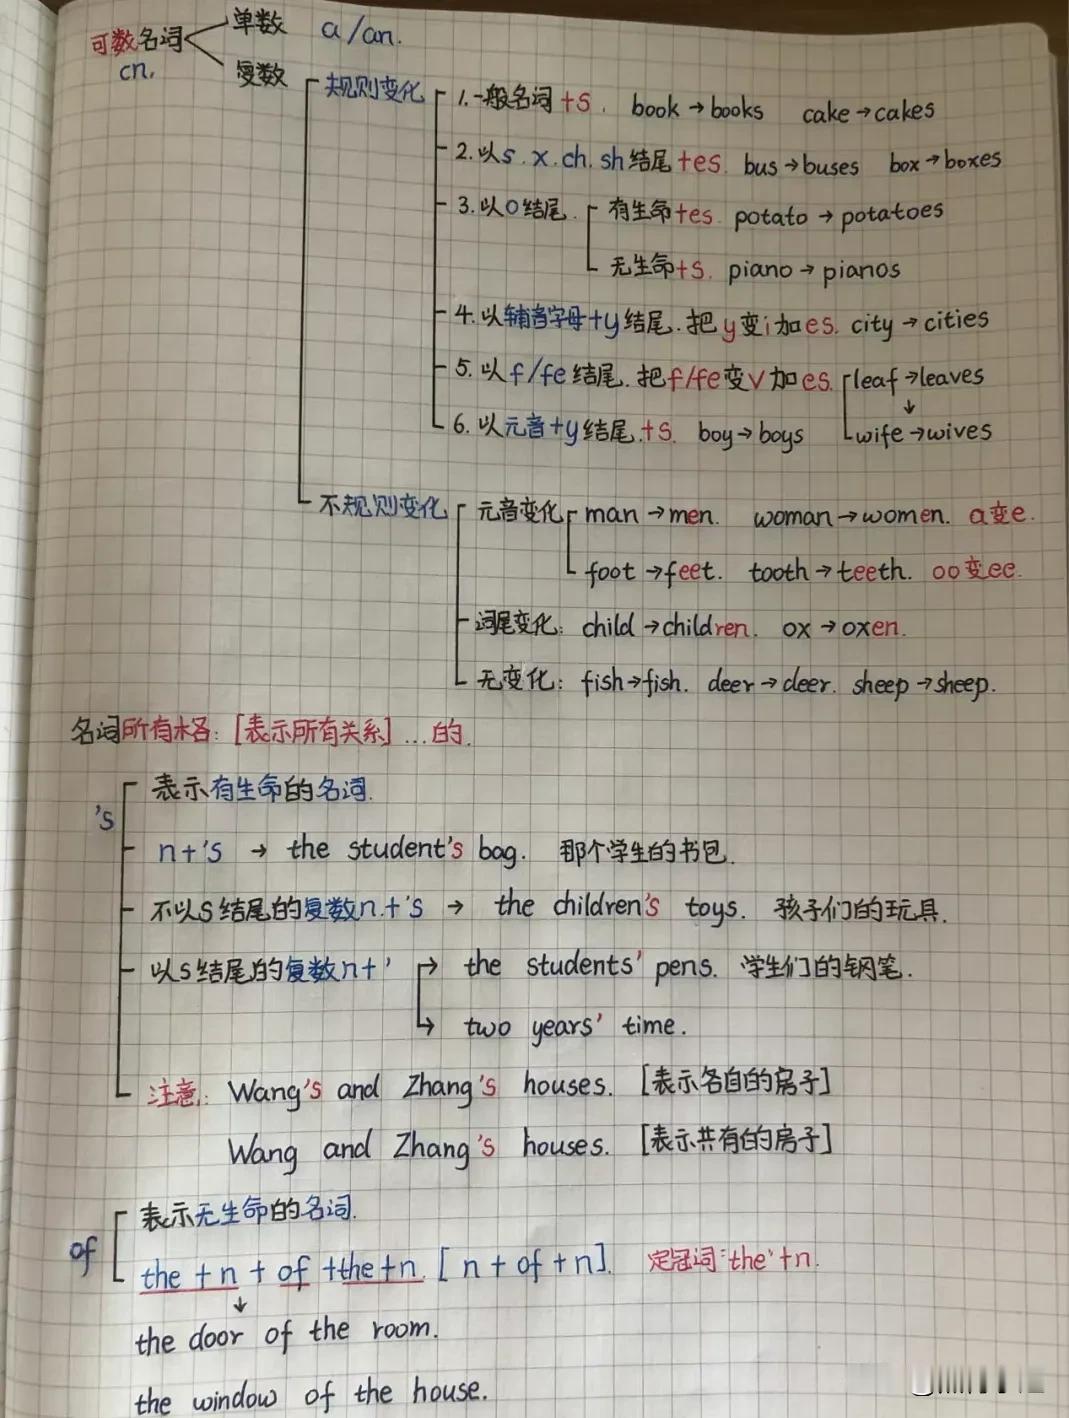 可数名词 单数 a/an.
cn. 复数
规则变化 1.一般名词+s. book→books cake→cakes
2.以s.x.ch.sh结尾+es. bus→buses box→boxes
3.以O结尾. 有生命+es. potato→potatoes
无生命+s. piano→pianos
4.以辅音字母+y结尾.把y变i加es. city→cities
5.以f/fe结尾.把f/fe变v加es. leaf→leaves
↓
6.以元音+y结尾.+s. boy→boys wife→wives
不规则变化 元音变化 man→men. woman→women. a变e.
foot→feet. tooth→teeth. oo变ee.
词尾变化: child→children. ox→oxen.
无变化: fish→fish. deer→deer. sheep→sheep.
名词所有格:[表示所有关系]...的.
's 表示有生命的名词.
n+'s → the student's bag. 那个学生的书包.
不以S结尾的复数n.+'s → the children's toys. 孩子们的玩具.
以s结尾的复数n+' → the students' pens. 学生们的钢笔.
→ two years' time.
注意: Wang's and Zhang's houses. [表示各自的房子]
Wang and Zhang's houses. [表示共有的房子]
of 表示无生命的名词.
the+n+of+the+n. [n+of+n]. 定冠词:'the'+n.
↓
the door of the room.
the window of the house.